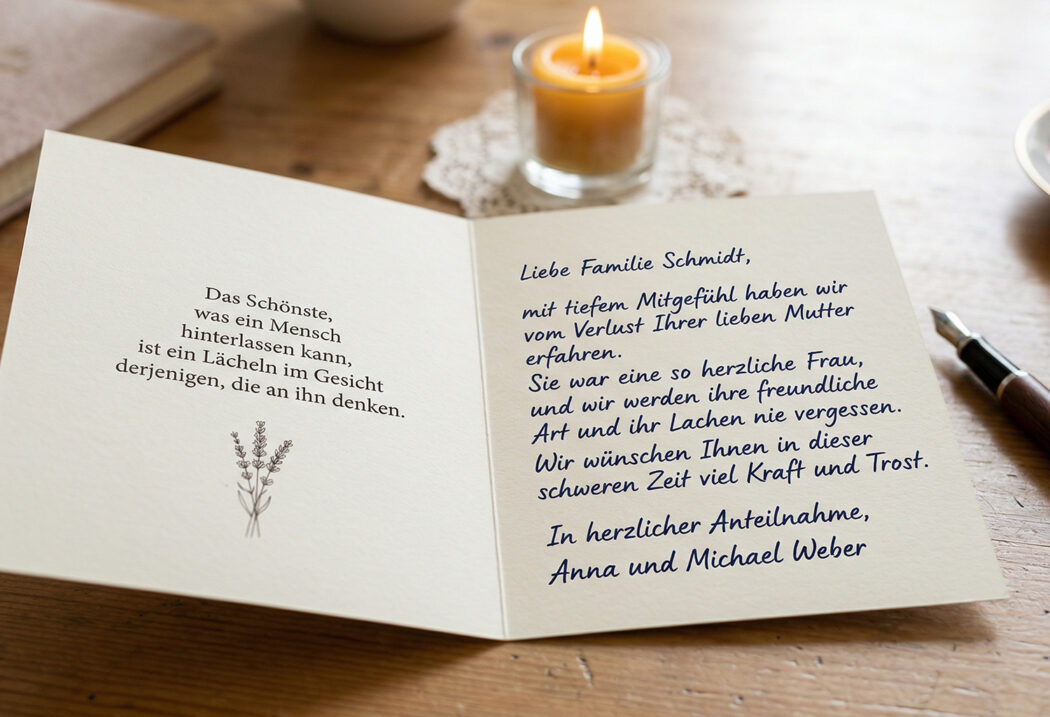 Das Schönste,
was ein Mensch
hinterlassen kann,
ist ein Lächeln im Gesicht
derjenigen, die an ihn denken.
Liebe Familie Schmidt,
mit tiefem Mitgefühl haben wir
vom Verlust Ihrer lieben Mutter
erfahren.
Sie war eine so herzliche Frau,
und wir werden ihre freundliche
Art und ihr Lachen nie vergessen.
Wir wünschen Ihnen in dieser
schweren Zeit viel Kraft und Trost.
In herzlicher Anteilnahme,
Anna und Michael Weber